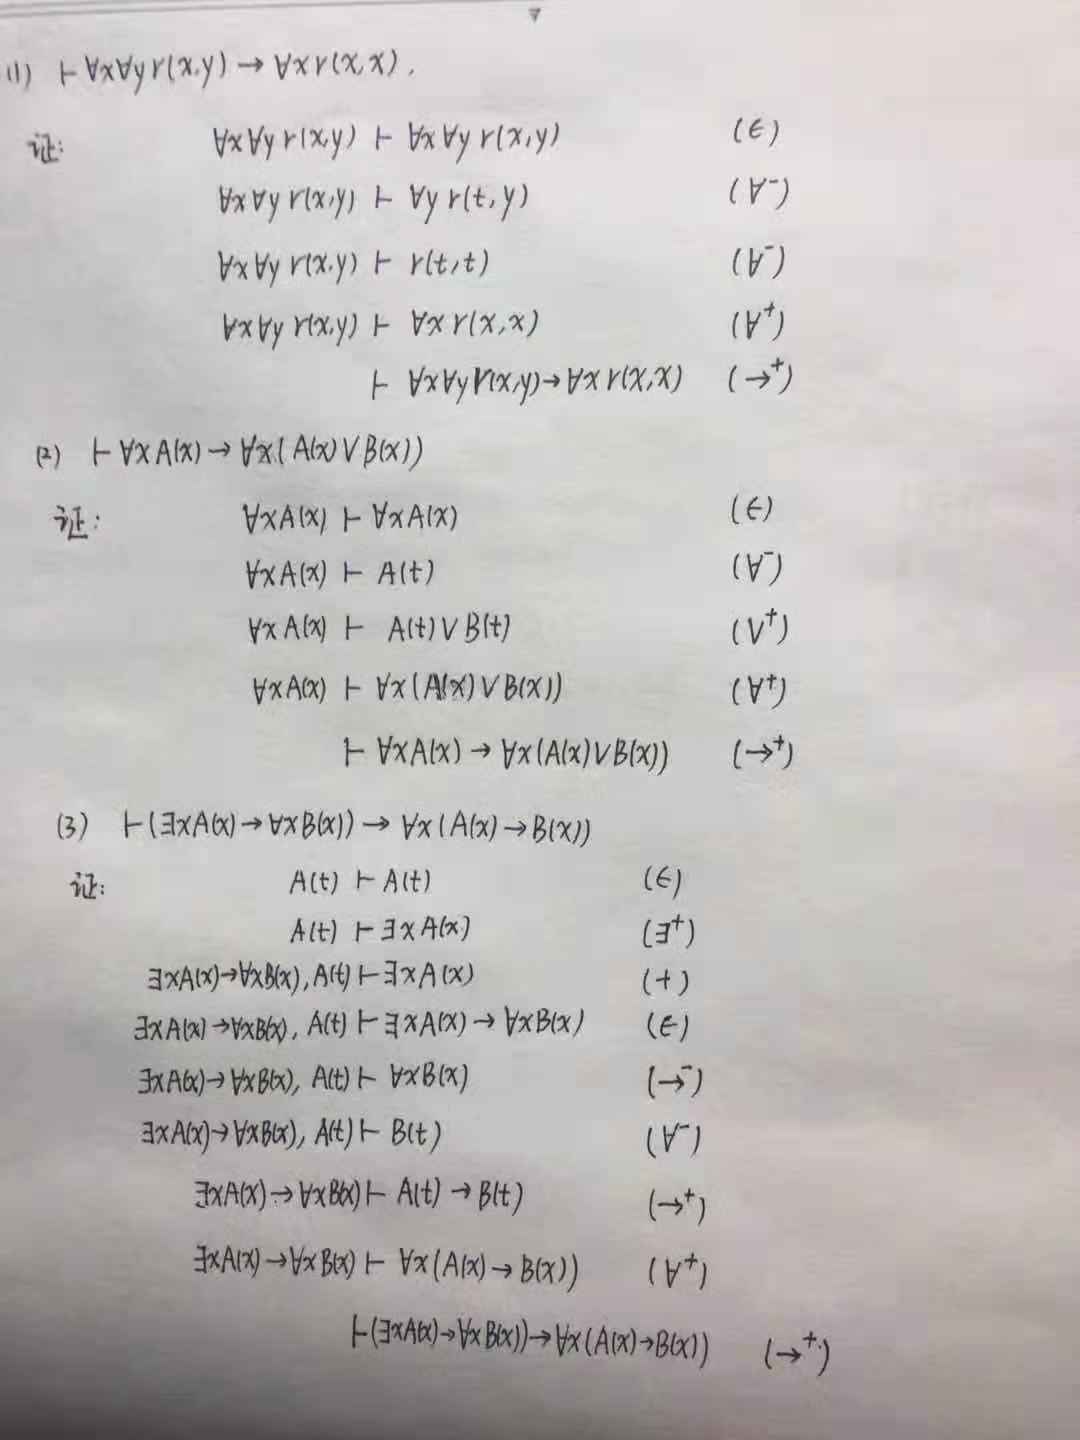 (1) ⊢ ∀x∀y r(x,y) → ∀x r(x,x).
证: ∀x∀y r(x,y) ⊢ ∀x∀y r(x,y) (∈)
∀x∀y r(x,y) ⊢ ∀y r(t,y) (∀⁻)
∀x∀y r(x,y) ⊢ r(t,t) (∀⁻)
∀x∀y r(x,y) ⊢ ∀x r(x,x) (∀⁺)
⊢ ∀x∀y r(x,y) → ∀x r(x,x) (→⁺)
(2) ⊢ ∀xA(x) → ∀x(A(x)∨B(x))
证: ∀xA(x) ⊢ ∀xA(x) (∈)
∀xA(x) ⊢ A(t) (∀⁻)
∀xA(x) ⊢ A(t)∨B(t) (∨⁺)
∀xA(x) ⊢ ∀x(A(x)∨B(x)) (∀⁺)
⊢ ∀xA(x) → ∀x(A(x)∨B(x)) (→⁺)
(3) ⊢(∃xA(x)→∀xB(x)) → ∀x(A(x)→B(x))
证: A(t) ⊢ A(t) (∈)
A(t) ⊢ ∃xA(x) (∃⁺)
∃xA(x)→∀xB(x), A(t) ⊢ ∃xA(x) (+)
∃xA(x)→∀xB(x), A(t) ⊢ ∃xA(x) → ∀xB(x) (∈)
∃xA(x)→∀xB(x), A(t) ⊢ ∀xB(x) (→⁻)
∃xA(x)→∀xB(x), A(t) ⊢ B(t) (∀⁻)
∃xA(x)→∀xB(x) ⊢ A(t)→B(t) (→⁺)
∃xA(x)→∀xB(x) ⊢ ∀x(A(x)→B(x)) (∀⁺)
⊢(∃xA(x)→∀xB(x))→∀x(A(x)→B(x)) (→⁺)